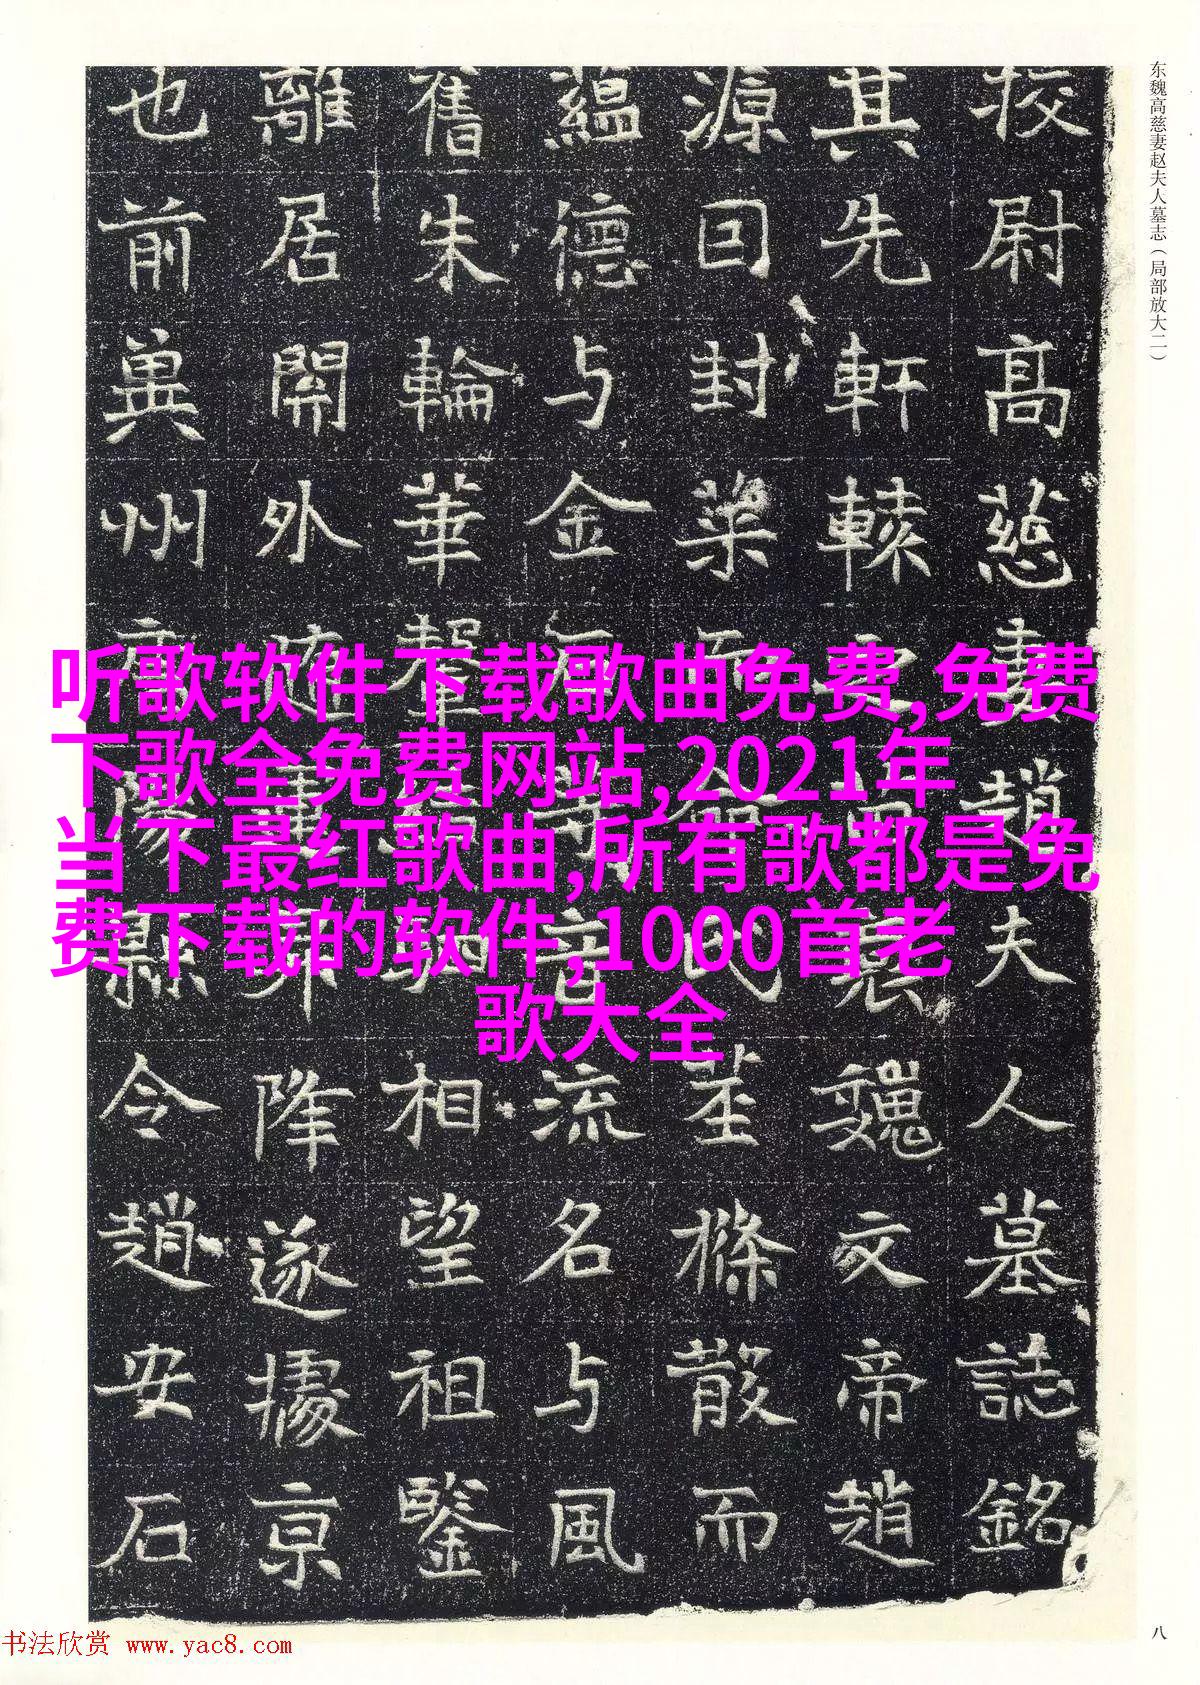 东魏高慈妻赵夫人墓志（局部放大二）
挍尉高慈妻趙夫人墓誌銘
其先軒轅之裔魏文帝趙
源囙封而命氏條散而
蘊德与金流名与風
舊朱輪華相望祖鑒
離居開外降遂據京
也前冀州陽縣令趙安石
听歌软件下载歌曲免费,免费
下歌全免费网站,2021年
当下最红歌曲,所有歌都是免
费下载的软件,1000首老
歌大全
八
书法欣赏 www.yac8.com